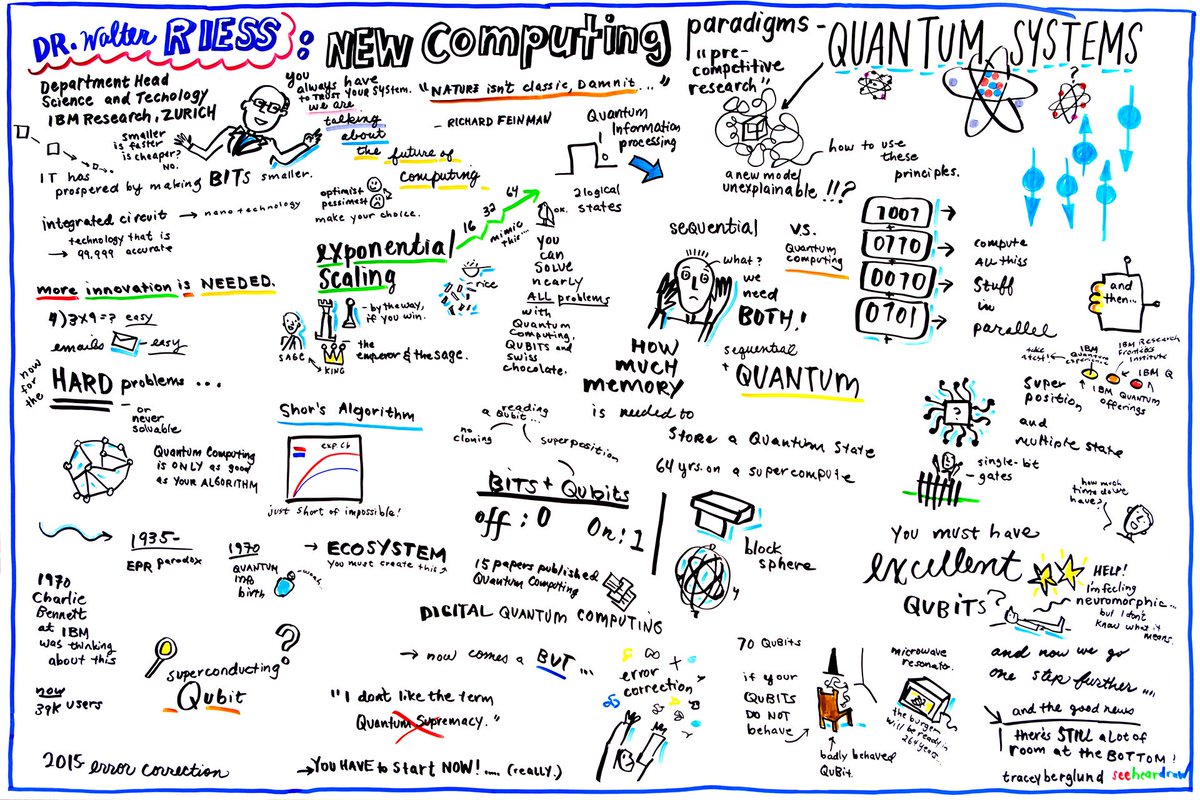 DR. Walter RIESS:
NEW Computing
paradigms -
QUANTUM SYSTEMS
Department Head
Science and Technology
IBM Research, ZURICH
smaller
is faster
is cheaper?
NO.
IT HAS
prospered by making BITs smaller.
you
always have
to TRUST your system.
we are
talking
about
the future of
computing
"NATURE isn't classic, Damnit..."
- RICHARD FEINMAN
Quantum
Information
processing
1
0
2 logical
states
"pre-
competitive
research"
a new model
unexplainable !!!?
how to use
these
principles.
?
integrated circuit → nanotechnology
→ technology that is
99.999 accurate
optimist
pessimist
make your choice.
exponential
scaling
16
32
64
mimic
this...
OK.
rice
- by the way,
if you win.
the
emperor & the sage.
SAGE
KING
you
can
solve
nearly
ALL problems
with
Quantum
Computing.
QUBITS and
swiss
chocolate.
sequential
vs.
Quantum
computing
what?
we
need
BOTH!
sequential
+ QUANTUM
1001
+
0110
+
0010
+
0101
+
compute
ALL thiss
stuff
in
parallel
and
then...
more innovation is NEEDED.
4) 3x9=? easy
emails - easy
now
for
the
HARD problems ...
- or
never
solvable
Quantum Computing
is ONLY as good
as YOUR ALGORITHM
Shor's Algorithm
just short of impossible!
reading
a Qubit...
no
cloning
superposition
BITS + Qubits
off : 0 On : 1
HOW
much
memory
is needed to
store a Quantum state
64 yrs. on a supercompute
block
sphere
take
IBM
Quantum
experience
IBM Research
Frontiers
Institute
IBM Q
IBM QUANTUM
offerings
Super
position
and
multiple state
?
single-bit
- gates
how much
time do we
have?
1935-
EPR paradox
1970
QUANTUM
info
birth
- weak
→ ECOSYSTEM
You must create this
1970
Charlie
Bennett
at IBM
was thinking
about this
now
39K users
?
superconducting
Qubit
15 papers published
Quantum Computing
DIGITAL QUANTUM COMPUTING
→ now comes a BUT ...
"I dont like the term
Quantum Supremacy."
error
correction
70 QUBITS
if your
QUBITS
DO NOT
behave
badly behaved
QUBIT.
microwave
resonator.
the burger
will be ready in
264 years...
You must have
excellent
QUBITS?
HELP!
i'm feeling
neuromorphic...
but I don't
know what it
means.
and now we go
one step further ...
and the good news
there's STILL a lot of
room at the BOTTOM!
2015 error correction
→ YOU HAVE to start NOW!.... (really.)
traceyberglund seeheardraw